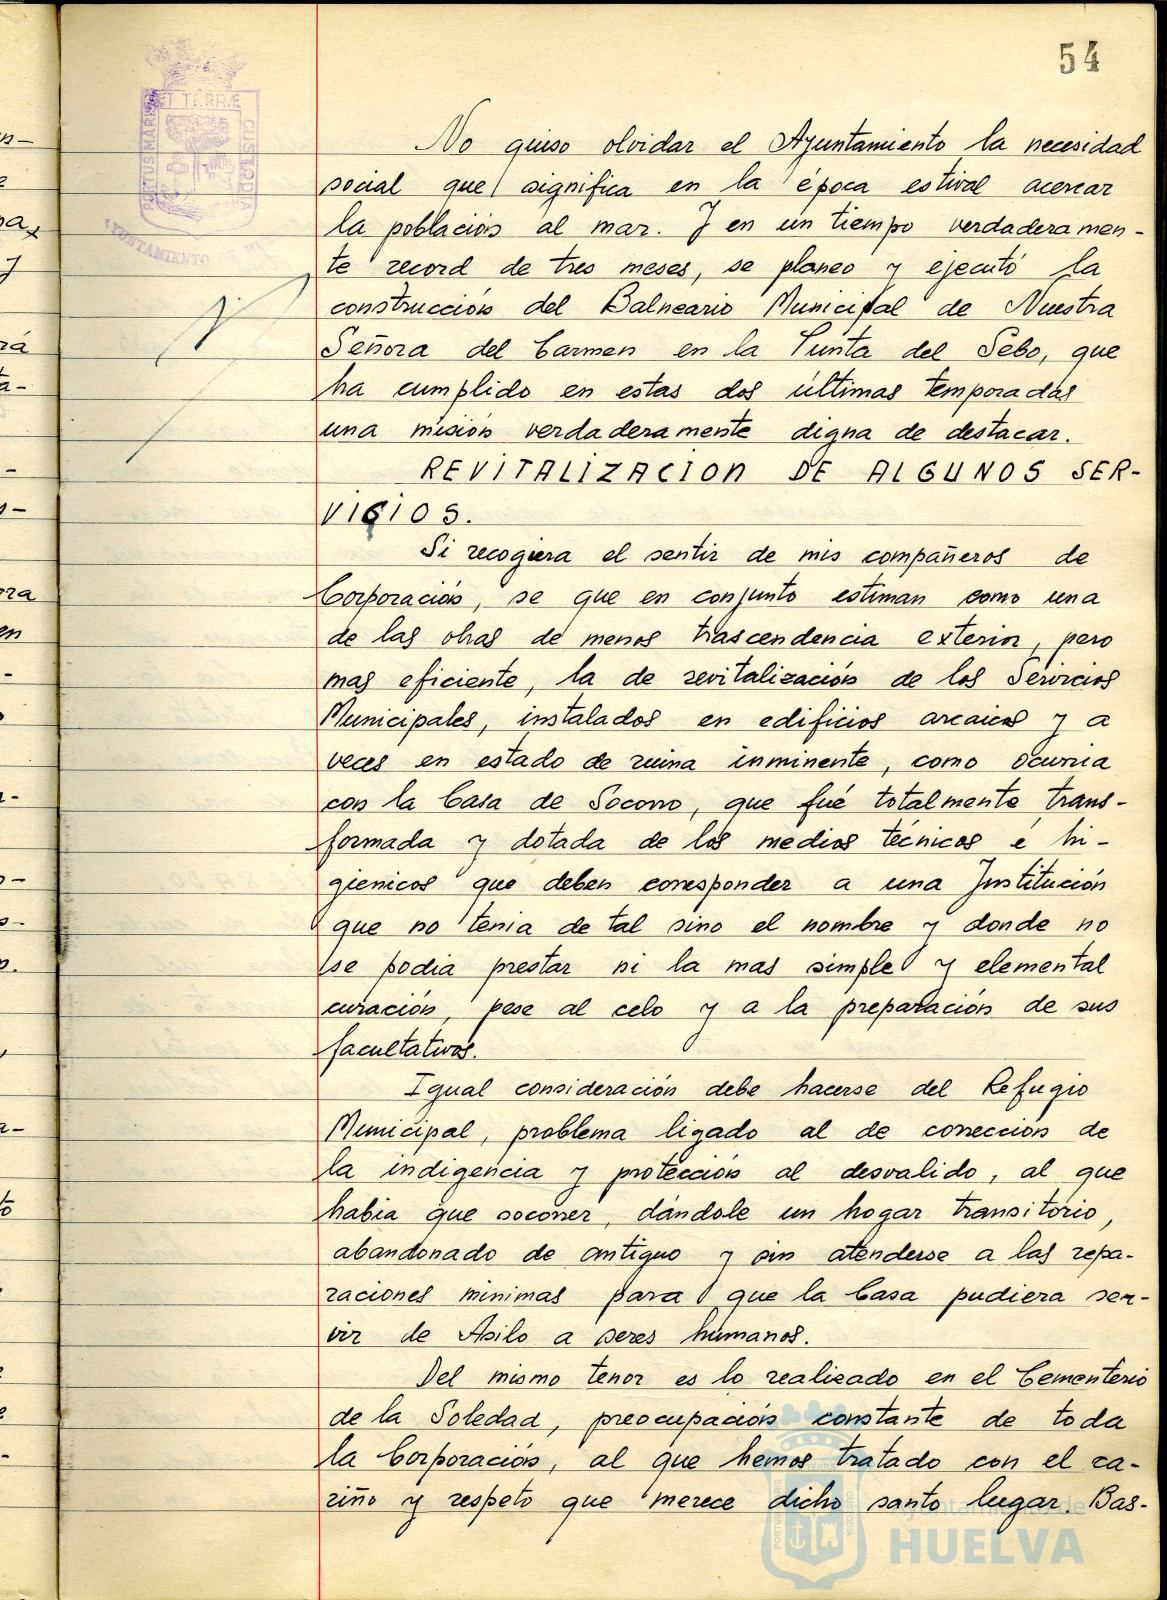 54
PORTUS MARIS ET TERRÆ CUSTODIA
AYUNTAMIENTO
No quiso olvidar el Ayuntamiento la necesidad
social que significa en la época estival acercar
la población al mar. Y en un tiempo verdaderamen-
te record de tres meses, se planeo y ejecutó la
construcción del Balneario Municipal de Nuestra
Señora del Carmen en la Punta del Sebo, que
ha cumplido en estas dos últimas temporadas
una misión verdaderamente digna de destacar.
REVITALIZACION DE ALGUNOS SER-
VICIOS.
Si recogiera el sentir de mis compañeros de
Corporación, se que en conjunto estiman como una
de las obras de menos trascendencia exterior, pero
mas eficiente, la de revitalización de los Servicios
Municipales, instalados en edificios arcaicos y a
veces en estado de ruina inminente, como ocurria
con la Casa de Socorro, que fué totalmente trans-
formada y dotada de los medios técnicos é hi-
gienicos que deben corresponder a una Institución
que no tenia de tal sino el nombre y donde no
se podia prestar ni la mas simple y elemental
curación, pese al celo y a la preparación de sus
facultativos.
Igual consideración debe hacerse del Refugio
Municipal, problema ligado al de corrección de
la indigencia y protección al desvalido, al que
habia que socorrer, dándole un hogar transitório,
abandonado de antiguo y sin atenderse a las repa-
raciones minimas para que la Casa pudiera ser-
vir de Asilo a seres humanos.
Del mismo tenor es lo realizado en el Cementerio
de la Soledad, preocupación constante de toda
la Corporación, al que hemos tratado con el ca-
riño y respeto que merece dicho santo lugar. Bas-
Ayuntamiento de
HUELVA